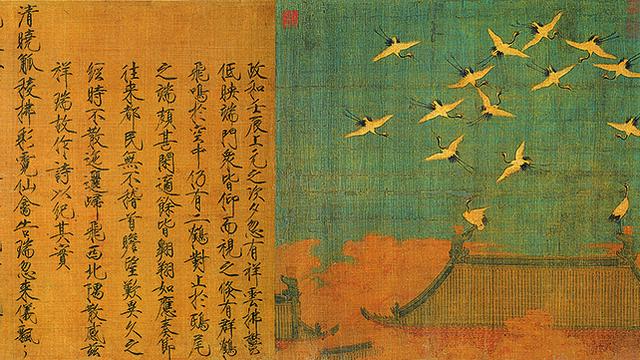 政和壬辰上元之次夕忽有祥雲拂鬱
低映端門眾皆仰而視之倏有群鶴
飛鳴於空中仍有二鶴對止於鴟尾
之端頗甚閑適餘皆翱翔如應奏節
往來都民無不稽首瞻望歎異久之
經時不散迤邐歸飛西北隅散感茲
祥瑞故作詩以紀其實
清曉觚稜拂彩霓仙禽告瑞忽來儀飄〻